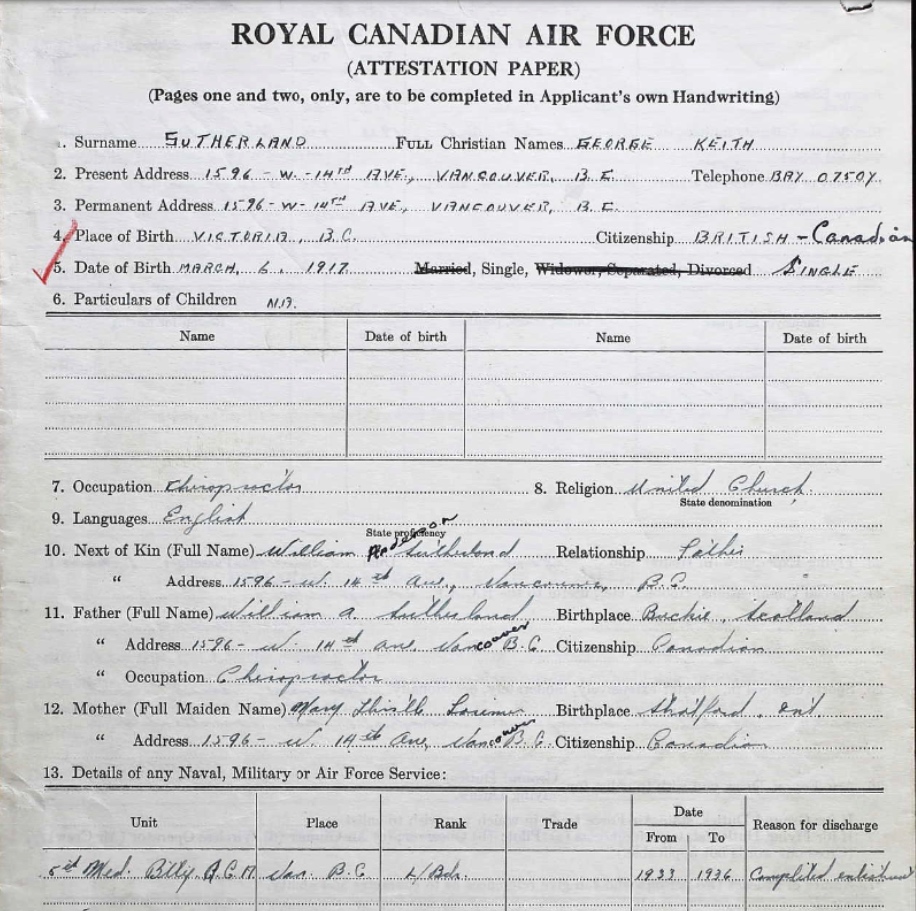 ROYAL CANADIAN AIR FORCE
(ATTESTATION PAPER)
(Pages one and two, only, are to be completed in Applicant's own Handwriting)
1. Surname SUTHERLAND FULL Christian Names GEORGE KEITH
2. Present Address 1596 - W. - 14TH AVE., VANCOUVER, B.C. Telephone BAY 0750Y
3. Permanent Address 1596 - W - 14TH AVE, VANCOUVER, B.C.
4. Place of Birth VICTORIA, B.C. Citizenship BRITISH - Canadian
5. Date of Birth MARCH, 6, 1917 Married, Single, Widower, Separated, Divorced SINGLE
6. Particulars of Children N.A.
Name Date of birth Name Date of birth
7. Occupation Chiropractor 8. Religion United Church
State denomination
9. Languages English
State proficiency
10. Next of Kin (Full Name) William Sutherland Relationship Father
" Address 1596 - W. 14th Ave., Vancouver, B.C.
11. Father (Full Name) William A. Sutherland Birthplace Buckie, Scotland
" Address 1596 - W. 14th Ave, Vancouver B.C. Citizenship Canadian
" Occupation Chiropractor
12. Mother (Full Maiden Name) Mary Birthplace Stratford, Ont.
" Address 1596 - W. 14th Ave, Vancouver B.C. Citizenship Canadian
13. Details of any Naval, Military or Air Force Service:
Unit Place Rank Trade Date From To Reason for discharge
5th Med. Van. B.C. L/Bdr. 1933 1936 Completed